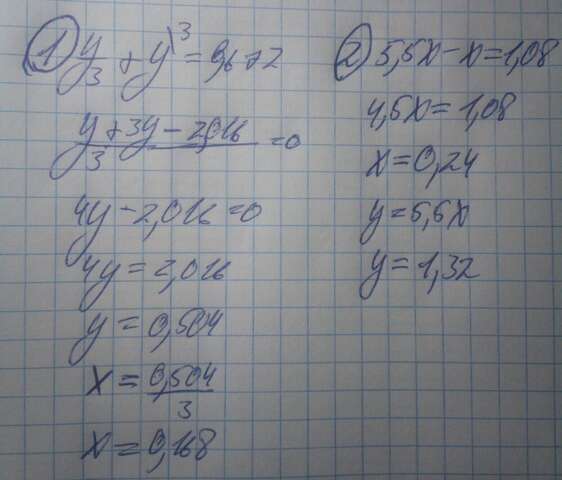 1) y/3 + y\3 = 0,672
y + 3y - 2,016 / 3 = 0
4y - 2,016 = 0
4y = 2,016
y = 0,504
x = 0,504/3
x = 0,168
2) 5,5x - x = 1,08
4,5x = 1,08
x = 0,24
y = 5,5x
y = 1,32